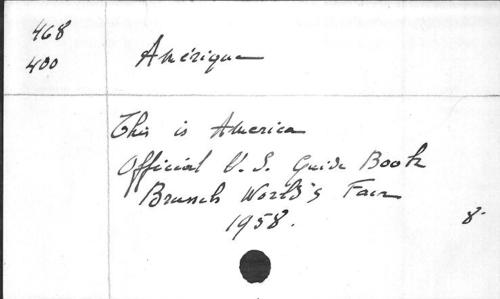 468
400
Amérique
This is America
Official U.S. Guide Book
Brussels World's Fair
1958.
8°